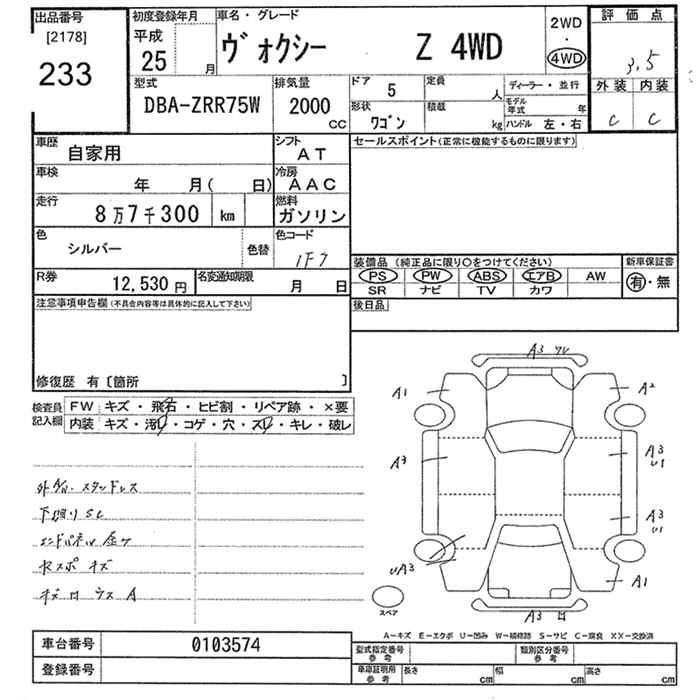 出品番号
[2178]
233
初度登録年月
平成
25 月
車名・グレード
ヴォクシー Z 4WD
2WD
・
4WD
評価点
3.5
外装 内装
C C
型式
DBA-ZRR75W
排気量
2000
CC
ドア
5
定員
人
形状
ワゴン
積載
kg
ディーラー・並行
モデル年式 年
ハンドル 左・右
車歴
自家用
シフト
AT
セールスポイント(正常に機能するものに限ります)
車検
年 月( 日)
冷房
AAC
走行
8万7千300 km
燃料
ガソリン
色
シルバー
色替
色コード
1F7
装備品(純正品に限り○をつけてください)
PS PW ABS エアB AW
SR ナビ TV カワ
新車保証書
有・無
R券
12,530円
名変通知期限
月 日
後日品
注意事項申告欄(不具合内容等は具体的に記入して下さい)
修復歴 有〔箇所 〕
検査員記入欄
FW キズ・飛石・ヒビ割・リペア跡・×要
内装 キズ・汚レ・コゲ・穴・スレ・キレ・破レ
スタッドレス
下廻りSC
エンドパネル
キズ
A
A3 ワレ
A1
A2
A3
A3
U1
A3
U1
UA3
A1
A3
スペア
A-キズ E-エクボ U-凹み W-補修跡 S-サビ C-腐食 XX-交換済
車台番号 0103574
登録番号
型式指定番号
参考
類別区分番号
参考
車庫証明用
参考
長さ cm
幅 cm
高さ cm